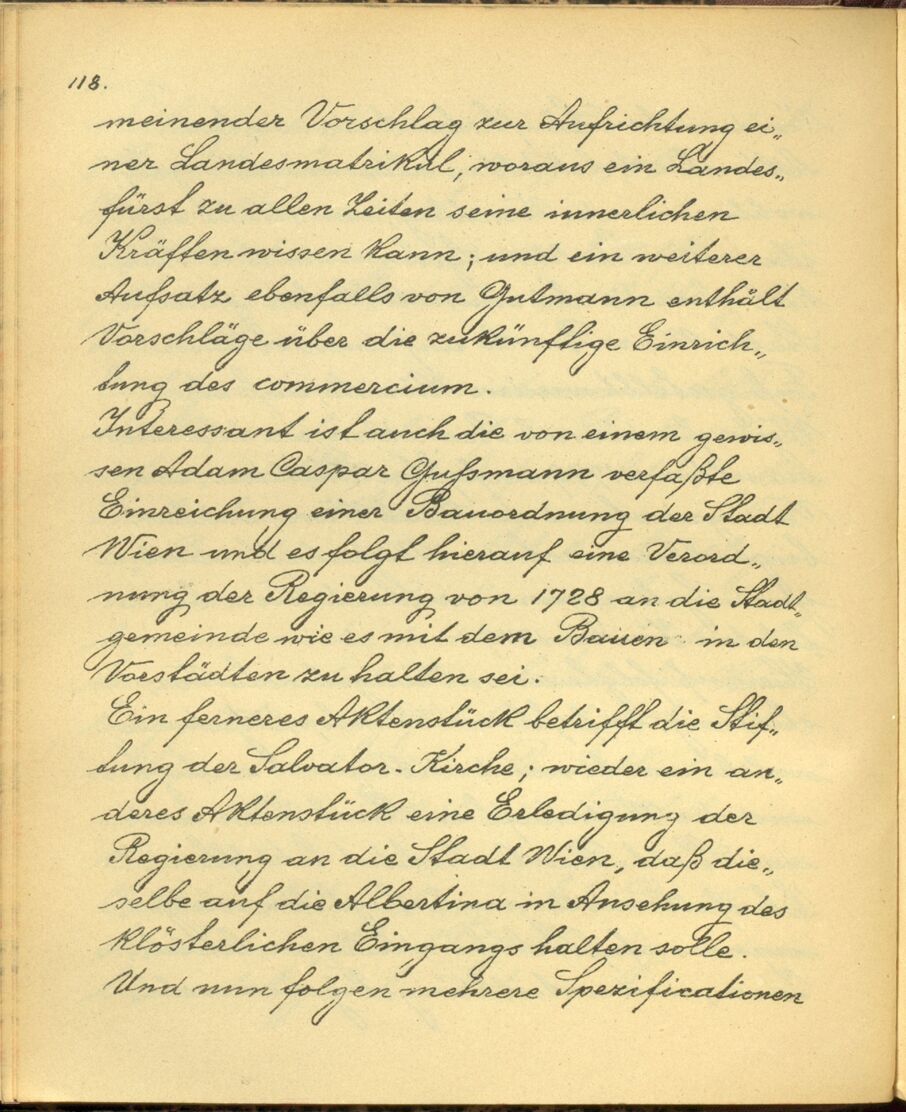 118.
meinender Vorschlag zur Aufrichtung ei„
ner Landesmatrikul, woraus ein Landes„
fürst zu allen Zeiten seine innerlichen
Kräften wissen kann; und ein weiterer
Aufsatz ebenfalls von Gutmann enthält
Vorschläge über die zukünftige Einrich„
tung des commercium.
Interessant ist auch die von einem gewis„
sen Adam Caspar Gußmann verfaßte
Einreichung einer Bauordnung der Stadt
Wien und es folgt hierauf eine Verord„
nung der Regierung von 1728 an die Stadt„
gemeinde wie es mit dem Bauen in den
Vorstädten zu halten sei.
Ein ferneres Aktenstück betrifft die Stif„
tung der Salvator-Kirche; wieder ein an„
deres Aktenstück eine Erledigung der
Regierung an die Stadt Wien, daß die„
selbe auf die Albertina in Ansehung des
klösterlichen Eingangs halten solle.
Und nun folgen mehrere Spezificationen